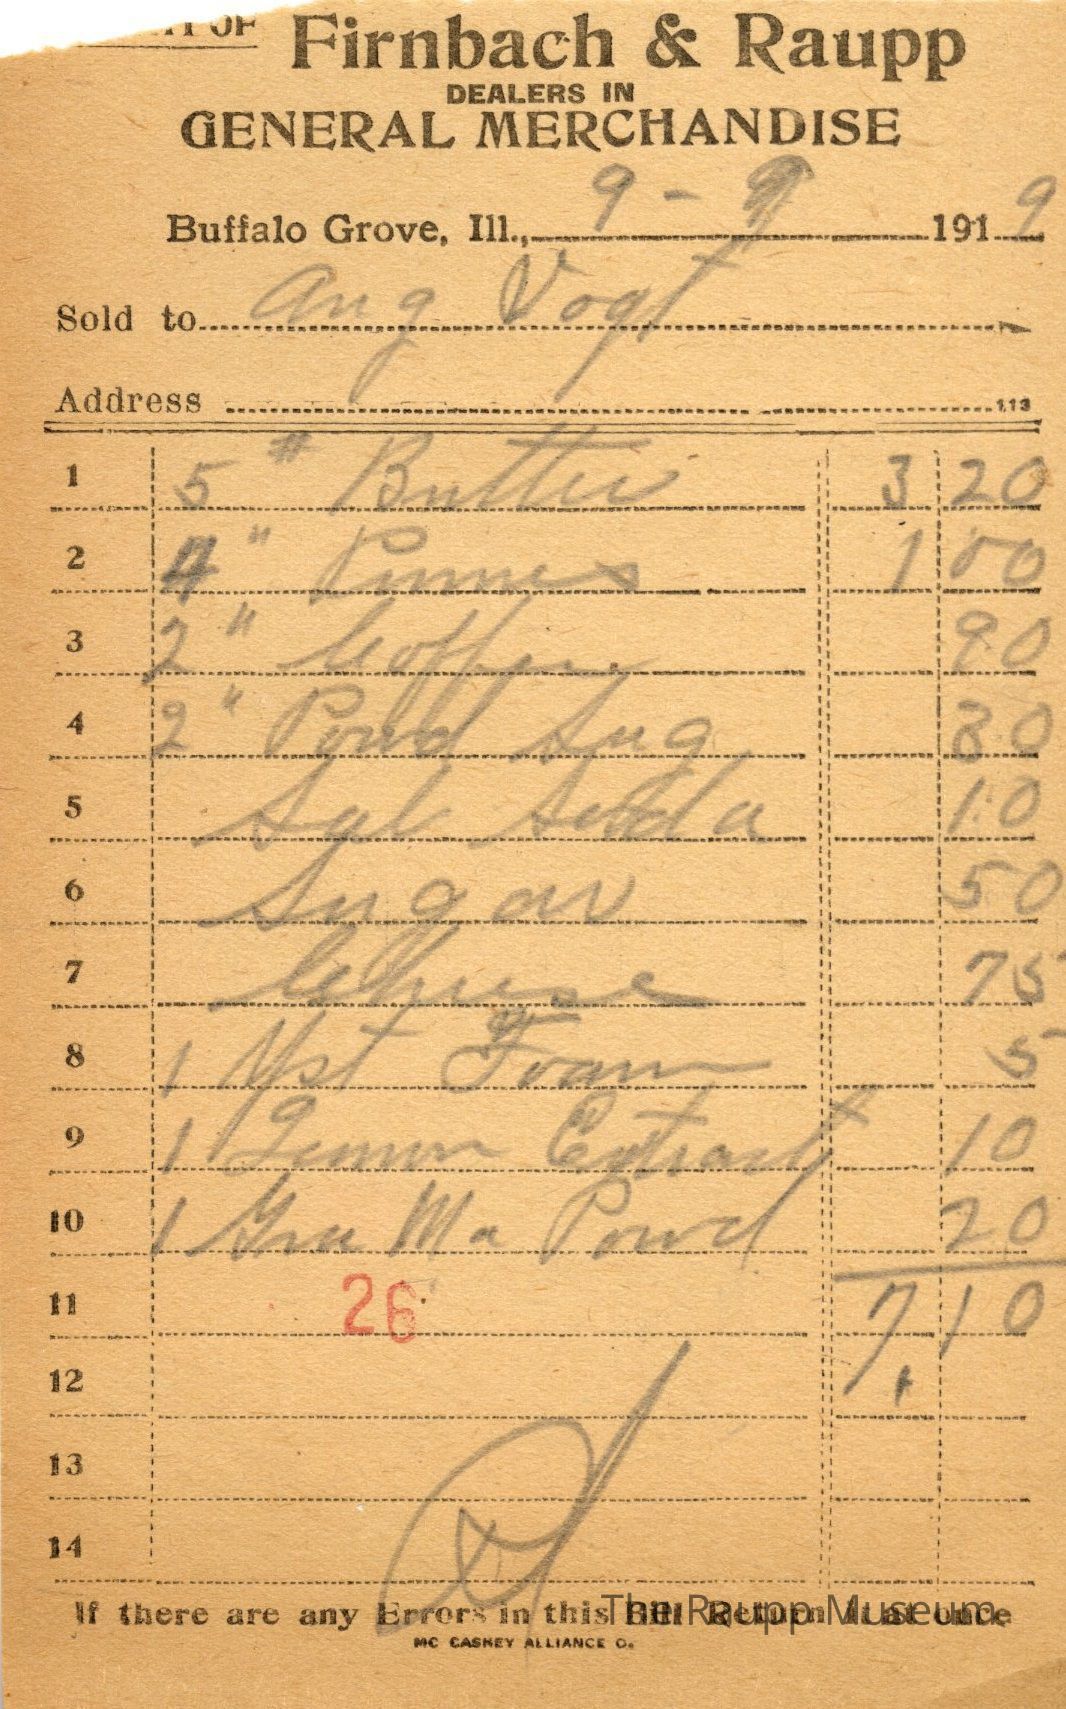 OF Firnbach & Raupp
DEALERS IN
GENERAL MERCHANDISE
Buffalo Grove, Ill., 9 - 9 1919
Sold to Aug Vogt
Address 113
1 5 # Butter 3 20
2 4 " Prunes 1 00
3 2 " Coffee 90
4 2 " Powd Sug 30
5 Sal Soda 10
6 Sugar 50
7 Cheese 75
8 1 Yst Foam 5
9 1 Lemon Extract 10
10 1 Gra Ma Powd 20
11 26 7 10
12
13
14
If there are any Errors in this Bill Return it at once
The Raupp Museum
MC CASKEY ALLIANCE O.